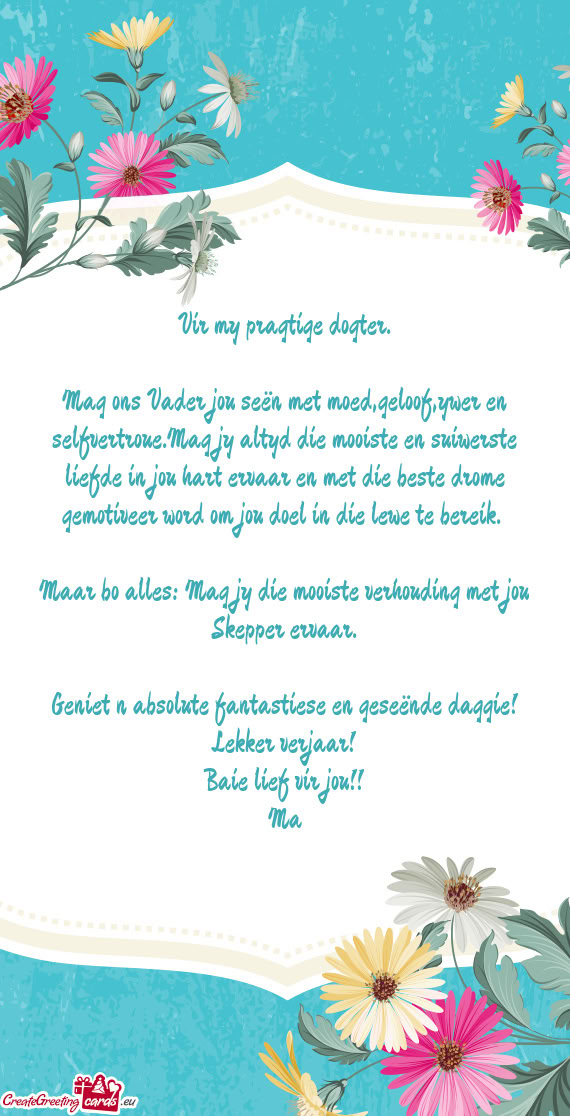 Vir my pragtige dogter.
Mag ons Vader jou seën met moed,geloof,ywer en
selfvertroue.Mag jy altyd die mooiste en suiwerste
liefde in jou hart ervaar en met die beste drome
gemotiveer word om jou doel in die lewe te bereik.
Maar bo alles: Mag jy die mooiste verhouding met jou
Skepper ervaar.
Geniet n absolute fantastiese en geseënde daggie!
Lekker verjaar!
Baie lief vir jou!!
Ma
CreateGreeting cards .eu